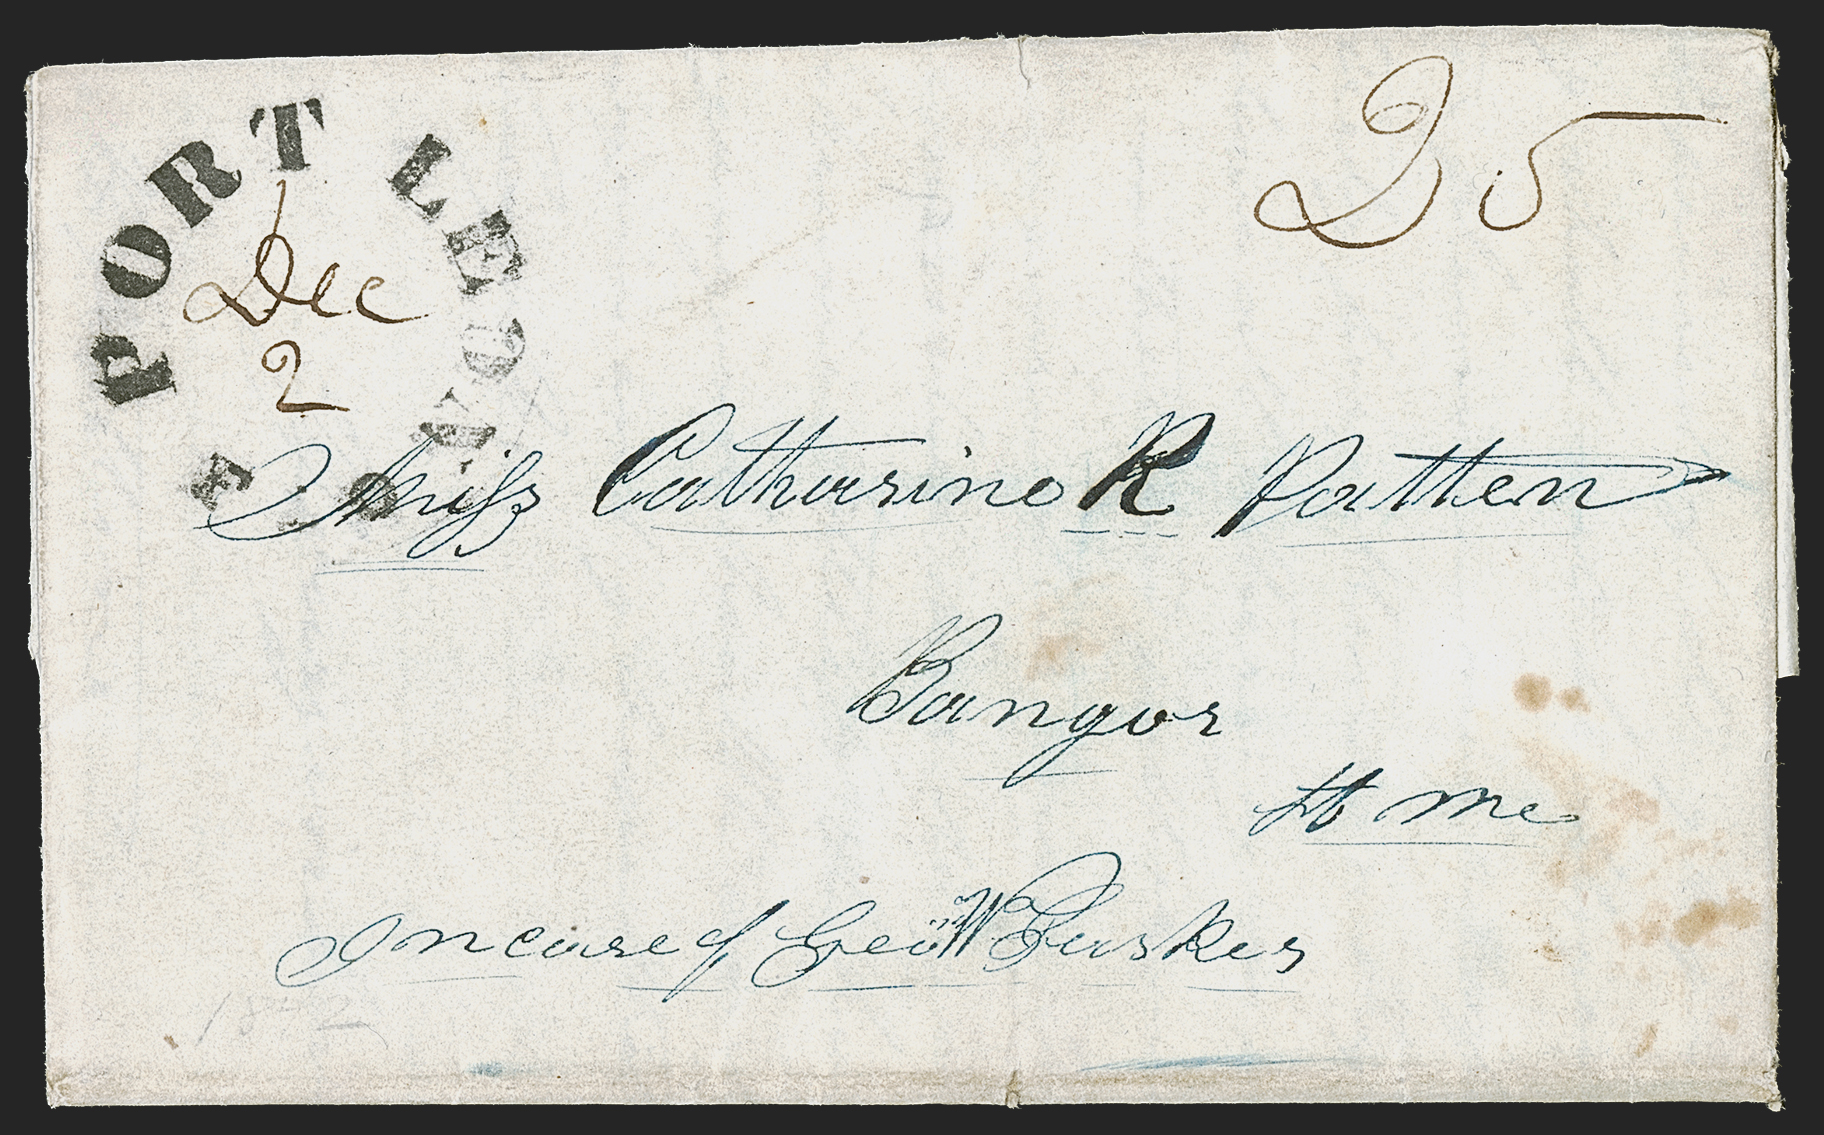 PORT LEON
Dec
2
25
Miss Catharine R Patten
Bangor
St Me
In care of Geo W
1842